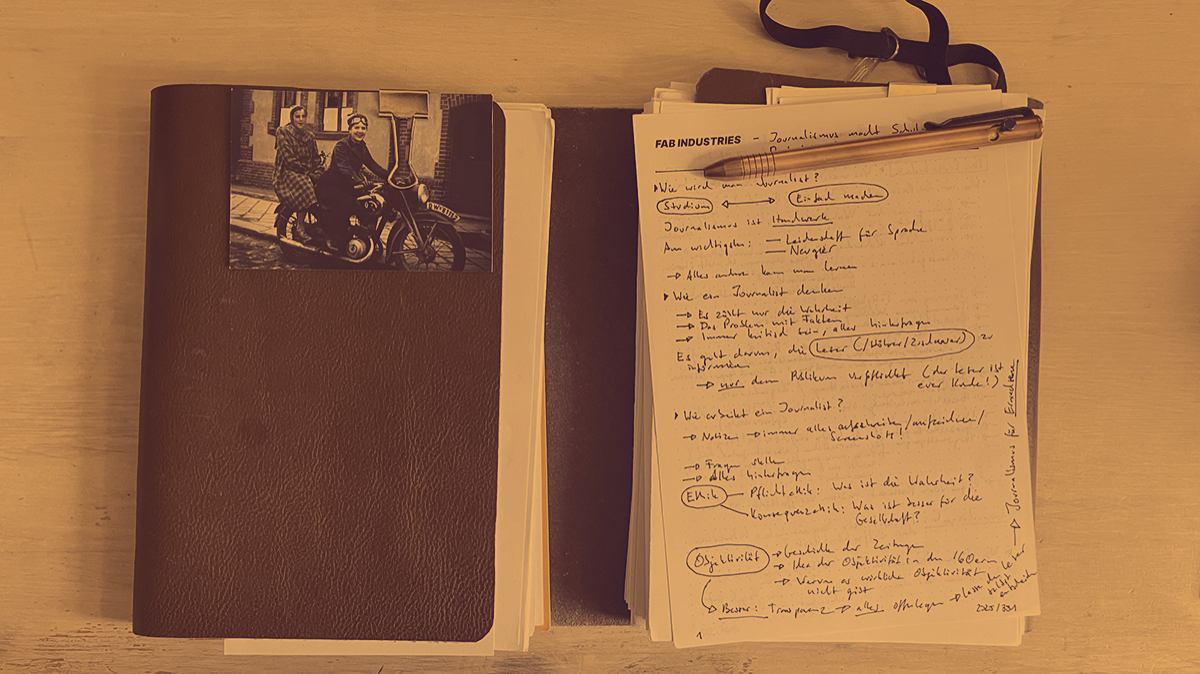 FAB INDUSTRIES - Journalismus macht
Wie wird man Journalist?
Studium Einfach machen
Journalismus ist Handwerk
Am wichtigsten: — Leidenschaft für Sprache
— Neugier
→ Alles andere kann man lernen
Wie ein Journalist denken
→ Es zählt nur die Wahrheit
→ Das Problem mit Fakten
→ Immer kritisch sein, alles hinterfragen
Es geht darum, die Leser (/Hörer/Zuschauer) zu
informieren
→ nur dem Publikum verpflichtet (der Leser ist
euer Kunde!)
Wie arbeitet ein Journalist?
→ Notizen → immer alles aufschreiben/aufzeichnen/
Screenshots!
→ Fragen stellen
→ Alles hinterfragen
Ethik — Pflichtethik: Was ist die Wahrheit?
Konsequenzethik: Was ist besser für die
Gesellschaft?
Objektivität → Geschichte der Zeitungen
→ Idee der Objektivität in den 1960ern
→ Warum es wirkliche Objektivität
nicht gibt
→ Besser: Transparenz → alles offenlegen → Lasse den Leser
selbst
entscheiden
→ Journalismus für Erwachsene
2025/331
1